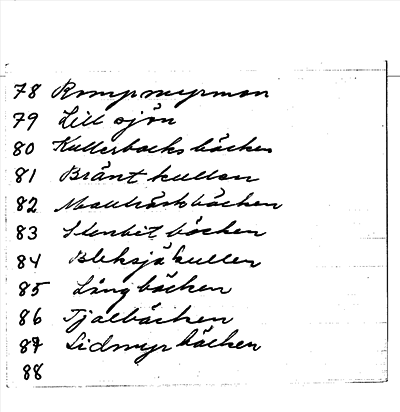 78 Rompmyrmon
79 Lill sjön
80 Kullerbacks bäcken
81 Bränt kullen
82 bäcken
83 Stenbit bäcken
84 Bleksjökullen
85 Lång bäcken
86 Tjälbäcken
87 Lidmyr bäcken
88